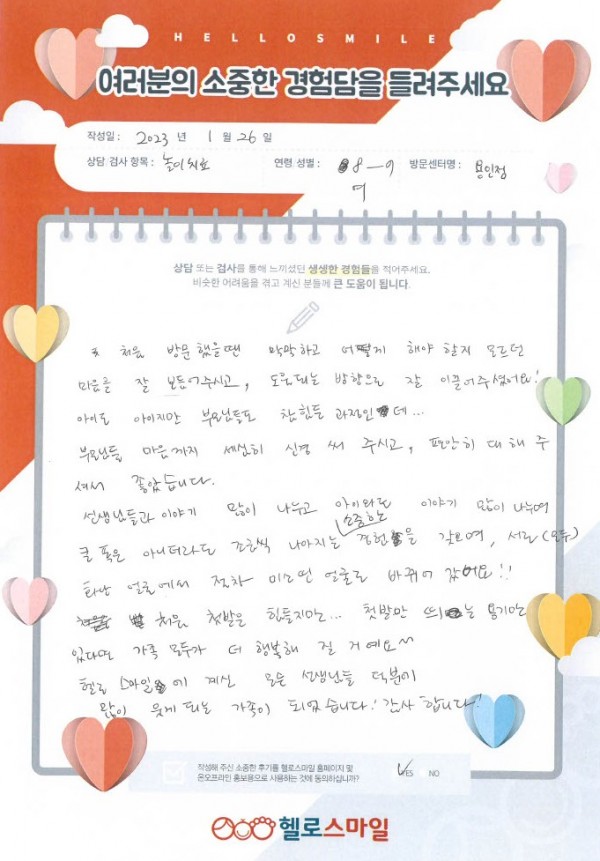 HELLOSMILE
여러분의 소중한 경험담을 들려주세요
작성일 : 2023 년 1 월 26 일
상담·검사 항목 : 놀이치료 연령·성별 : 8 여 방문센터명 : 용인점
상담 또는 검사를 통해 느끼셨던 생생한 경험들을 적어주세요.
비슷한 어려움을 겪고 계신 분들께 큰 도움이 됩니다.
처음 방문했을땐 막막하고 어떻게 해야 할지 모르던
마음을 잘 보듬어주시고, 도움되는 방향으로 잘 이끌어주셨어요!
아이도 아이지만 부모님들도 참 힘든 과정인데...
부모님들 마음까지 세심히 신경 써 주시고, 편안히 대해 주
셔서 좋았습니다.
선생님들과 이야기 많이 나누고 아이와도 이야기 많이 나누며
큰 폭은 아니더라도 조금씩 나아지는 소중한 경험을 갖으며, 서로(모두)
화난 얼굴에서 점차 미소띤 얼굴로 바뀌어 갔어요!!
처음 첫발은 힘들지만... 첫발만 띄는 용기만
있다면 가족 모두가 더 행복해 질 거예요~
헬로 스마일에 계신 모든 선생님들 덕분에
많이 웃게 되는 가족이 되었습니다! 감사합니다!
작성해 주신 소중한 후기를 헬로스마일 홈페이지 및
온오프라인 홍보용으로 사용하는 것에 동의하십니까?
YES NO
헬로스마일